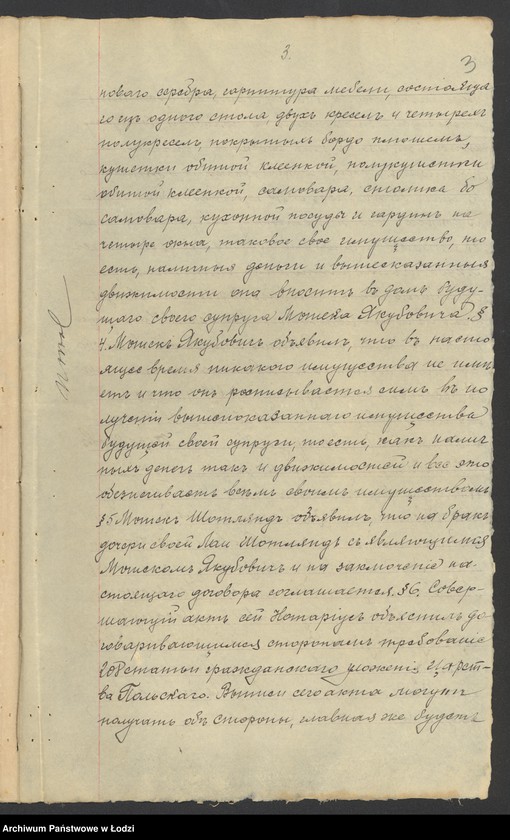 3.
3
новаго серебра, гарнитура мебели, состояща
го изъ одного стола, двухъ креселъ и четырехъ
полукреселъ, покрытыхъ бордо плюшемъ,
кушетки обитой клеенкой, полукушетки
обитой клеенкой, самовара, столика во
самовара, кухонной посуды и гардинъ на
четыре окна, таковое свое имущество, то
есть, наличныя деньги и вышесказанныя
движимости она вноситъ въ домъ буду-
щаго своего супруга Мошека Якубовича. §
4. Мошекъ Якубовичъ объявилъ, что въ насто
ящее время никакого имущества не имѣ
етъ и что онъ росписывается симъ въ по
лученіи вышепоказаннаго имущества
будущей своей супруги, тоесть, какъ налич
ныхъ денегъ такъ и движимостей и все это
обезпечиваетъ всѣмъ своимъ имуществомъ
§5 Мошекъ Шотляндъ объявилъ, что на бракъ
дочери своей Маи Шотляндъ съ являющимся
Мошекомъ Якубовичъ и на заключеніе на-
стоящаго договора соглашается. §6. Совер-
шающій актъ сей Нотаріусъ объяснилъ до
говаривающимся сторонамъ требованіе
208 статьи гражданскаго уложенія Царст-
ва Польскаго. Выписи сего акта могутъ
получать обѣ стороны, главная же будетъ
Archiwum Państwowe w Łodzi